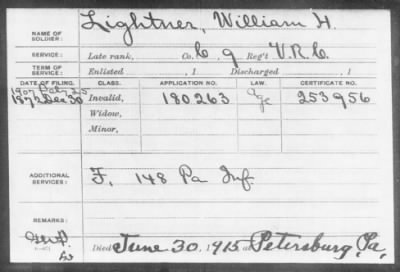 Lightner, William H.
NAME OF SOLDIER:
SERVICE: Late rank, Co. C, 9 Reg't V.R.C.
TERM OF SERVICE: Enlisted , 1 Discharged , 1
DATE OF FILING. CLASS. APPLICATION NO. LAW. CERTIFICATE NO.
1907 25
1872 Dec 30 Invalid, 180263 Age 253956
Widow,
Minor,
ADDITIONAL SERVICES: F, 148 Pa Inf
REMARKS:
Died June 30, 1915 at Petersburg, Pa,